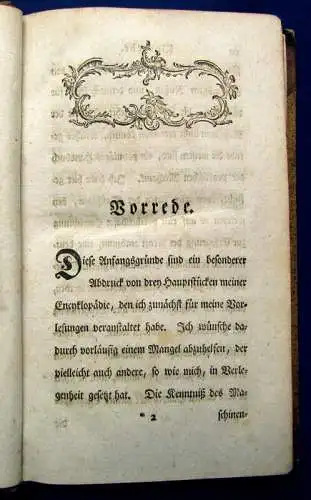 Vorrede.
Diese Anfangsgründe sind ein besonderer
Abdruck von drey Hauptstücken meiner
Encyklopädie, den ich zunächst für meine Vor-
lesungen veranstaltet habe. Ich wünsche da-
durch vorläufig einem Mangel abzuhelfen, der
vielleicht auch andere, so wie mich, in Verle-
genheit gesetzt hat. Die Kenntniß des Ma-
* 2
schinen-